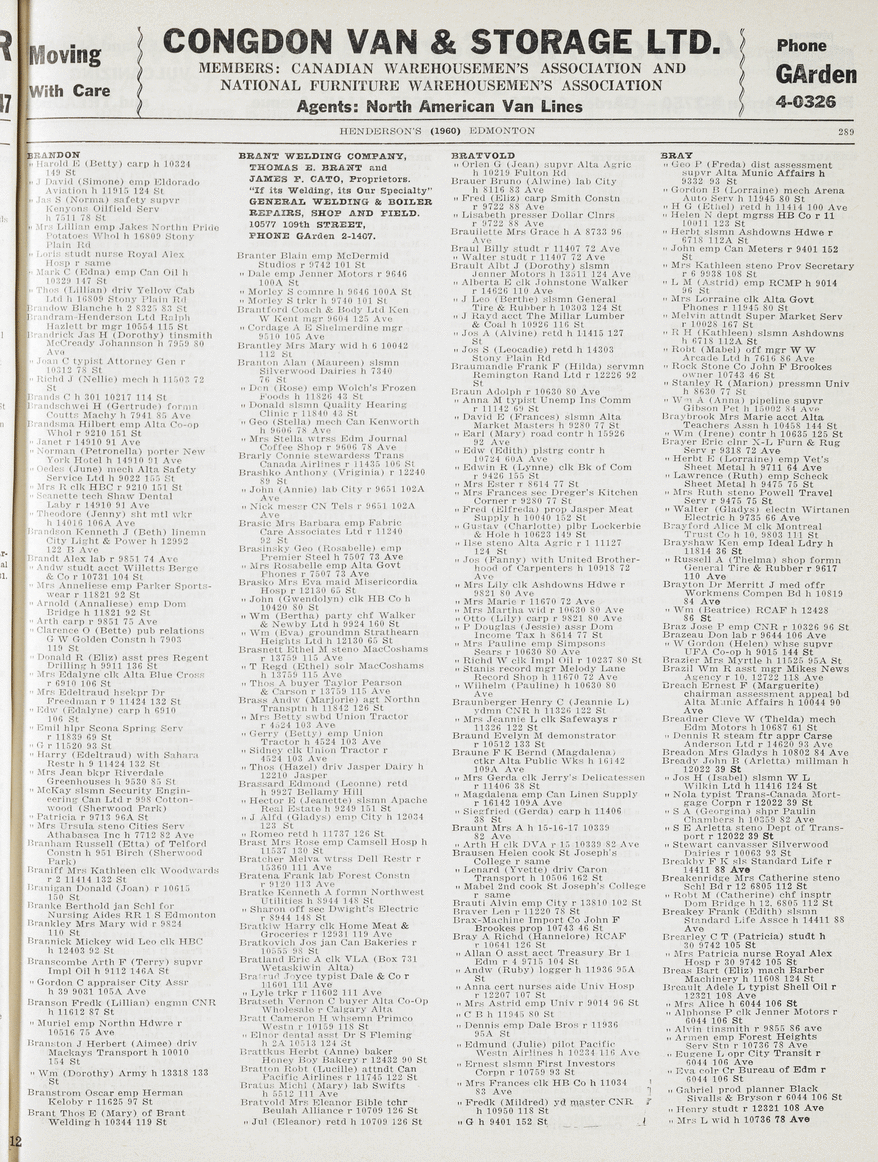 Moving
With Care
CONGDON VAN & STORAGE LTD.
MEMBERS: CANADIAN WAREHOUSEMEN'S ASSOCIATION AND
NATIONAL FURNITURE WAREHOUSEMEN'S ASSOCIATION
Agents: North American Van Lines
Phone
GArden
4-0326
HENDERSON'S (1960) EDMONTON
289
BRANDON
" Harold E (Betty) carp h 10324
149 St
" J David (Simone) emp Eldorado
Aviation h 11915 124 St
" Jas S (Norma) safety supvr
Kenyons Oilfield Serv
h 7511 78 St
" Mrs Lillian emp Jakes Northn Pride
Potatoes Whol h 16809 Stony
Plain Rd
" Lorin studt nurse Royal Alex
Hosp r same
" Mark C (Edna) emp Can Oil h
10329 147 St
" Thos (Lillian) driv Yellow Cab
Ltd h 16809 Stony Plain Rd
Brandow Blanche h 2 8325 83 St
Brandram-Henderson Ltd Ralph
Hazlett br mgr 10554 115 St
Brandrick Jas H (Dorothy) tinsmith
McCready Johannson h 7959 80
Ave
" Joan C typist Attorney Gen r
10312 78 St
" Richd J (Nellie) mech h 11503 72
St
Brands C h 301 10217 114 St
Brandschwei H (Gertrude) formn
Coutts Machy h 7941 85 Ave
Brandsma Hilbert emp Alta Co-op
Whol r 9210 151 St
" Janet r 14910 91 Ave
" Norman (Petronella) porter New
York Hotel h 14910 91 Ave
" Oedes (June) mech Alta Safety
Service Ltd h 9022 155 St
" Mrs R clk HBC r 9210 151 St
" Seanette tech Shaw Dental
Laby r 14910 91 Ave
" Theodore (Jenny) sht mtl wkr
h 14016 106A Ave
Brandson Kenneth J (Beth) linemn
City Light & Power h 12992
122 B Ave
Brandt Alex lab r 9851 74 Ave
" Andw studt acct Willetts Berge
& Co r 10731 104 St
" Mrs Anneliese emp Parker Sports-
wear r 11821 92 St
" Arnold (Annaliese) emp Dom
Bridge h 11821 92 St
" Arth carp r 9851 75 Ave
" Clarence O (Bette) pub relations
G W Golden Constn h 7903
119 St
" Donald R (Eliz) asst pres Regent
Drilling h 9911 136 St
" Mrs Edalyne clk Alta Blue Cross
r 6910 106 St
" Mrs Edeltraud hsekpr Dr
Freedman r 9 11424 132 St
" Edw (Edalyne) carp h 6910
106 St
" Emil hlpr Scona Spring Serv
r 11839 69 St
" G r 11520 93 St
" Harry (Edeltraud) with Sahara
Restr h 9 11424 132 St
" Mrs Jean bkpr Riverdale
Greenhouses h 9530 85 St
" McKay slsmn Security Engin-
eering Can Ltd r 998 Cotton-
wood (Sherwood Park)
" Patricia r 9713 96A St
" Mrs Ursula steno Cities Serv
Athabasca Inc h 7712 82 Ave
Branham Russell (Etta) of Telford
Constn h 951 Birch (Sherwood
Park)
Braniff Mrs Kathleen clk Woodwards
r 2 11414 132 St
Branigan Donald (Joan) r 10615
150 St
Branke Berthold jan Schl for
Nursing Aides RR 1 S Edmonton
Brankley Mrs Mary wid r 9824
110 St
Brannick Mickey wid Leo clk HBC
h 12403 92 St
Branscombe Arth F (Terry) supvr
Impl Oil h 9112 146A St
" Gordon C appraiser City Assr
h 39 9031 105A Ave
Branson Fredk (Lillian) engmn CNR
h 11612 87 St
" Muriel emp Northn Hdwre r
10516 75 Ave
Branston J Herbert (Aimee) driv
Mackays Transport h 10010
154 St
" Wm (Dorothy) Army h 13318 133
St
Branstrom Oscar emp Herman
Keloby r 11625 97 St
Brant Thos E (Mary) of Brant
Welding h 10344 119 St
12
BRANT WELDING COMPANY,
THOMAS E. BRANT and
JAMES F. CATO, Proprietors.
"If its Welding, its Our Specialty"
GENERAL WELDING & BOILER
REPAIRS, SHOP AND FIELD.
10577 109th STREET,
PHONE GArden 2-1407.
Branter Blain emp McDermid
Studios r 9742 101 St
" Dale emp Jenner Motors r 9646
100A St
" Morley S comnre h 9646 100A St
" Morley S trkr h 9740 101 St
Brantford Coach & Body Ltd Ken
W Kent mgr 9604 125 Ave
" Cordage A E Shelmerdine mgr
9510 105 Ave
Brantley Mrs Mary wid h 6 10042
112 St
Branton Alan (Maureen) slsmn
Silverwood Dairies h 7340
76 St
" Don (Rose) emp Welch's Frozen
Foods h 11826 43 St
" Donald slsmn Quality Hearing
Clinic r 11840 43 St
" Geo (Stella) mech Can Kenworth
h 9606 78 Ave
" Mrs Stella wtrss Edm Journal
Coffee Shop r 9606 78 Ave
Brarly Connie stewardess Trans
Canada Airlines r 11435 106 St
Brashko Anthony (Vriginia) r 12240
89 St
" John (Annie) lab City r 9651 102A
Ave
" Nick messr CN Tels r 9651 102A
Ave
Brasic Mrs Barbara emp Fabric
Care Associates Ltd r 11240
92 St
Brasinsky Geo (Rosabelle) emp
Premier Steel h 7507 73 Ave
" Mrs Rosabelle emp Alta Govt
Phones r 7507 73 Ave
Brasko Mrs Eva maid Misericordia
Hosp r 12130 65 St
" John (Gwendolyn) clk HB Co h
10420 80 St
" Wm (Bertha) party chf Walker
& Newby Ltd h 9924 160 St
" Wm (Eva) groundmn Strathearn
Heights Ltd h 12130 65 St
Brasnett Ethel M steno MacCoshams
r 13759 115 Ave
" T Regd (Ethel) solr MacCoshams
h 13759 115 Ave
" Thos A buyer Taylor Pearson
& Carson r 13759 115 Ave
Brass Andw (Marjorie) agt Northn
Transptn h 11842 126 St
" Mrs Betty swbd Union Tractor
r 4524 103 Ave
" Gerry (Betty) emp Union
Tractor h 4524 103 Ave
" Sidney clk Union Tractor r
4524 103 Ave
" Thos (Hazel) driv Jasper Dairy h
12210 Jasper
Brassard Edmond (Leonne) retd
h 9927 Bellamy Hill
" Hector E (Jeanette) slsmn Apache
Real Estate h 9249 151 St
" J Alfd (Gladys) emp City h 12034
123 St
" Romeo retd h 11737 126 St
Brast Mrs Rose emp Camsell Hosp h
11537 130 St
Bratcher Melva wtrss Dell Restr r
15360 111 Ave
Bratena Frank lab Forest Constn
r 9120 113 Ave
Bratke Kenneth A formn Northwest
Utilities h 8944 148 St
" Sharon off sec Dwight's Electric
r 8944 148 St
Bratkiw Harry clk Home Meat &
Groceries r 12931 119 Ave
Bratkovich Jos jan Can Bakeries r
10555 98 St
Bratland Eric A clk VLA (Box 731
Wetaskiwin Alta)
Bratrud Joyce typist Dale & Co r
11601 111 Ave
" Lyle trkr r 11602 111 Ave
Bratseth Vernon C buyer Alta Co-Op
Wholesale r Calgary Alta
Bratt Cameron H whsemn Primco
Westn r 10159 118 St
" Elnor dental asst Dr S Fleming
h 2A 10513 124 St
Brattkus Herbt (Anne) baker
Honey Boy Bakery r 12432 90 St
Bratton Robt (Lucille) attndt Can
Pacific Airlines r 11745 122 St
Bratus Michl (Mary) lab Swifts
h 5512 111 Ave
Bratvold Mrs Eleanor Bible tchr
Beulah Alliance r 10709 126 St
" Jul (Eleanor) retd h 10709 126 St
BRATVOLD
" Orlen G (Jean) supvr Alta Agric
h 10219 Fulton Rd
Brauer Bruno (Alwine) lab City
h 8116 83 Ave
" Fred (Eliz) carp Smith Constn
r 9722 88 Ave
" Lisabeth presser Dollar Clnrs
r 9722 88 Ave
Brauilette Mrs Grace h A 8733 96
Ave
Braul Billy studt r 11407 72 Ave
" Walter studt r 11407 72 Ave
Brault Albt J (Dorothy) slsmn
Jenner Motors h 13511 124 Ave
" Alberta E clk Johnstone Walker
r 14626 110 Ave
" J Leo (Berthe) slsmn General
Tire & Rubber h 10303 124 St
" J Rayd acct The Millar Lumber
& Coal h 10926 116 St
" Jos A (Alvine) retd h 11415 127
St
" Jos S (Leocadie) retd h 14303
Stony Plain Rd
Braumandle Frank F (Hilda) servmn
Remington Rand Ltd r 12226 92
St
Braun Adolph r 10630 80 Ave
" Anna M typist Unemp Ins Comm
r 11142 69 St
" David E (Frances) slsmn Alta
Market Masters h 9280 77 St
" Earl (Mary) road contr h 15926
92 Ave
" Edw (Edith) plstrg contr h
10724 60A Ave
" Edwin R (Lynne) clk Bk of Com
r 9426 155 St
" Mrs Ester r 8614 77 St
" Mrs Frances sec Dreger's Kitchen
Corner r 9280 77 St
" Fred (Elfreda) prop Jasper Meat
Supply h 10040 152 St
" Gustav (Charlotte) plbr Lockerbie
& Hole h 10623 149 St
" Ilse steno Alta Agric r 1 11127
124 St
" Jos (Fanny) with United Brother-
hood of Carpenters h 10918 72
Ave
" Mrs Lily clk Ashdowns Hdwe r
9821 80 Ave
" Mrs Marie r 11670 72 Ave
" Mrs Martha wid r 10630 80 Ave
" Otto (Lily) carp r 9821 80 Ave
" P Douglas (Jessie) assr Dom
Income Tax h 8614 77 St
" Mrs Pauline emp Simpsons
Sears r 10630 80 Ave
" Richd W clk Impl Oil r 10237 80 St
" Stanis record mgr Melody Lane
Record Shop h 11670 72 Ave
" Wilhelm (Pauline) h 10630 80
Ave
Braunberger Henry C (Jeannie L)
ydmn CNR h 11326 122 St
" Mrs Jeannie L clk Safeways r
11326 122 St
Braund Evelyn M demonstrator
r 10512 133 St
Braune F K Bernd (Magdalena)
ctkr Alta Public Wks h 16142
109A Ave
" Mrs Gerda clk Jerry's Delicatessen
r 11406 38 St
" Magdalena emp Can Linen Supply
r 16142 109A Ave
" Siegfried (Gerda) carp h 11406
38 St
Braunt Mrs A h 15-16-17 10339
82 Ave
" Arth H clk DVA r 15 10339 82 Ave
Brausen Helen cook St Joseph's
College r same
" Lenard (Yvette) driv Caron
Transport h 10506 162 St
" Mabel 2nd cook St Joseph's College
r same
Brauti Alvin emp City r 13810 102 St
Braver Len r 11220 78 St
Brax-Machine Import Co John F
Brookes prop 10743 46 St
Bray A Richd (Hannelore) RCAF
r 10641 126 St
" Allan O asst acct Treasury Br 1
Edm r 4 9715 104 St
" Andw (Ruby) logger h 11936 95A
St
" Anna cert nurses aide Univ Hosp
r 12207 107 St
" Mrs Astrid emp Univ r 9014 96 St
" C B h 11945 80 St
" Dennis emp Dale Bros r 11936
95A St
" Edmund (Julie) pilot Pacific
Westn Airlines h 10234 116 Ave
" Ernest slsmn First Investors
Corpn r 10759 93 St
" Mrs Frances clk HB Co h 11034
83 Ave
" Fredk (Mildred) yd master CNR
h 10950 118 St
" G h 9401 152 St
BRAY
" Geo P (Freda) dist assessment
supvr Alta Munic Affairs h
9332 93 St
" Gordon B (Lorraine) mech Arena
Auto Serv h 11945 80 St
" H G (Ethel) retd h 11414 100 Ave
" Helen N dept mgrss HB Co r 11
10011 123 St
" Herbt slsmn Ashdowns Hdwe r
6718 112A St
" John emp Can Meters r 9401 152
St
" Mrs Kathleen steno Prov Secretary
r 6 9938 108 St
" L M (Astrid) emp RCMP h 9014
96 St
" Mrs Lorraine clk Alta Govt
Phones r 11945 80 St
" Melvin attndt Super Market Serv
r 10028 167 St
" R H (Kathleen) slsmn Ashdowns
h 6718 112A St
" Robt (Mabel) off mgr W W
Arcade Ltd h 7616 86 Ave
" Rock Stone Co John F Brookes
owner 10743 46 St
" Stanley R (Marion) pressmn Univ
h 8630 77 St
" Wm A (Anna) pipeline supvr
Gibson Pet h 15002 84 Ave
Braybrook Mrs Marie acct Alta
Teachers Assn h 10458 144 St
" Wm (Irene) contr h 10635 125 St
Brayer Eric clnr X-L Furn & Rug
Serv r 9318 72 Ave
" Herbt E (Lorraine) emp Vet's
Sheet Metal h 9711 64 Ave
" Lawrence (Ruth) emp Scheck
Sheet Metal h 9475 75 St
" Mrs Ruth steno Powell Travel
Serv r 9475 75 St
" Walter (Gladys) electn Wirtanen
Electric h 9735 66 Ave
Brayford Alice M clk Montreal
Trust Co h 10, 9803 111 St
Brayshaw Ken emp Ideal Ldry h
11814 36 St
" Russell A (Thelma) shop formn
General Tire & Rubber r 9617
110 Ave
Brayton Dr Merritt J med offr
Workmens Compen Bd h 10819
84 Ave
" Wm (Beatrice) RCAF h 12428
86 St
Braz Jose P emp CNR r 10326 96 St
Brazeau Don lab r 9644 106 Ave
" W Gordon (Helen) whse supvr
UFA Co-op h 9015 144 St
Brazier Mrs Myrtle h 11525 95A St
Brazil Wm R asst mgr Mikes News
Agency r 10, 12722 118 Ave
Breach Ernest F (Marguerite)
chairman assessment appeal bd
Alta Munic Affairs h 10044 90
Ave
Breadner Cleve W (Thelda) mech
Edm Motors h 10687 61 St
" Dennis R steam ftr appr Carse
Anderson Ltd r 14620 93 Ave
Breadon Mrs Gladys h 10802 84 Ave
Bready John B (Arletta) millman h
12022 39 St
" Jos H (Isabel) slsmn W L
Wilkin Ltd h 11416 124 St
" Nola typist Trans-Canada Mort-
gage Corpn r 12022 39 St
" S A (Georgina) shpr Paulin
Chambers h 10359 82 Ave
" S E Arletta steno Dept of Trans-
port r 12022 39 St
" Stewart canvasser Silverwood
Dairies r 10063 93 St
Breakby F K sls Standard Life r
14411 88 Ave
Breakenridge Mrs Catherine steno
Schl Bd r 12 6805 112 St
" Robt M (Catherine) chf insptr
Dom Bridge h 12, 6805 112 St
Breakey Frank (Edith) slsmn
Standard Life Assce h 14411 88
Ave
Brearley C T (Patricia) studt h
30 9742 105 St
" Mrs Patricia nurse Royal Alex
Hosp r 30 9742 105 St
Breas Bart (Eliz) mach Barber
Machinery h 11608 124 St
Breault Adele L typist Shell Oil r
12321 108 Ave
" Mrs Alice h 6044 106 St
" Alphonse P clk Jenner Motors r
6044 106 St
" Alvin tinsmith r 9855 86 ave
" Armen emp Forest Heights
Serv Stn r 10736 78 Ave
" Eugene L opr City Transit r
6044 106 Ave
" Eva colr Cr Bureau of Edm r
6044 106 St
" Gabriel prod planner Black
Sivalls & Bryson r 6044 106 St
" Henry studt r 12321 108 Ave
" Mrs L wid h 10736 78 Ave